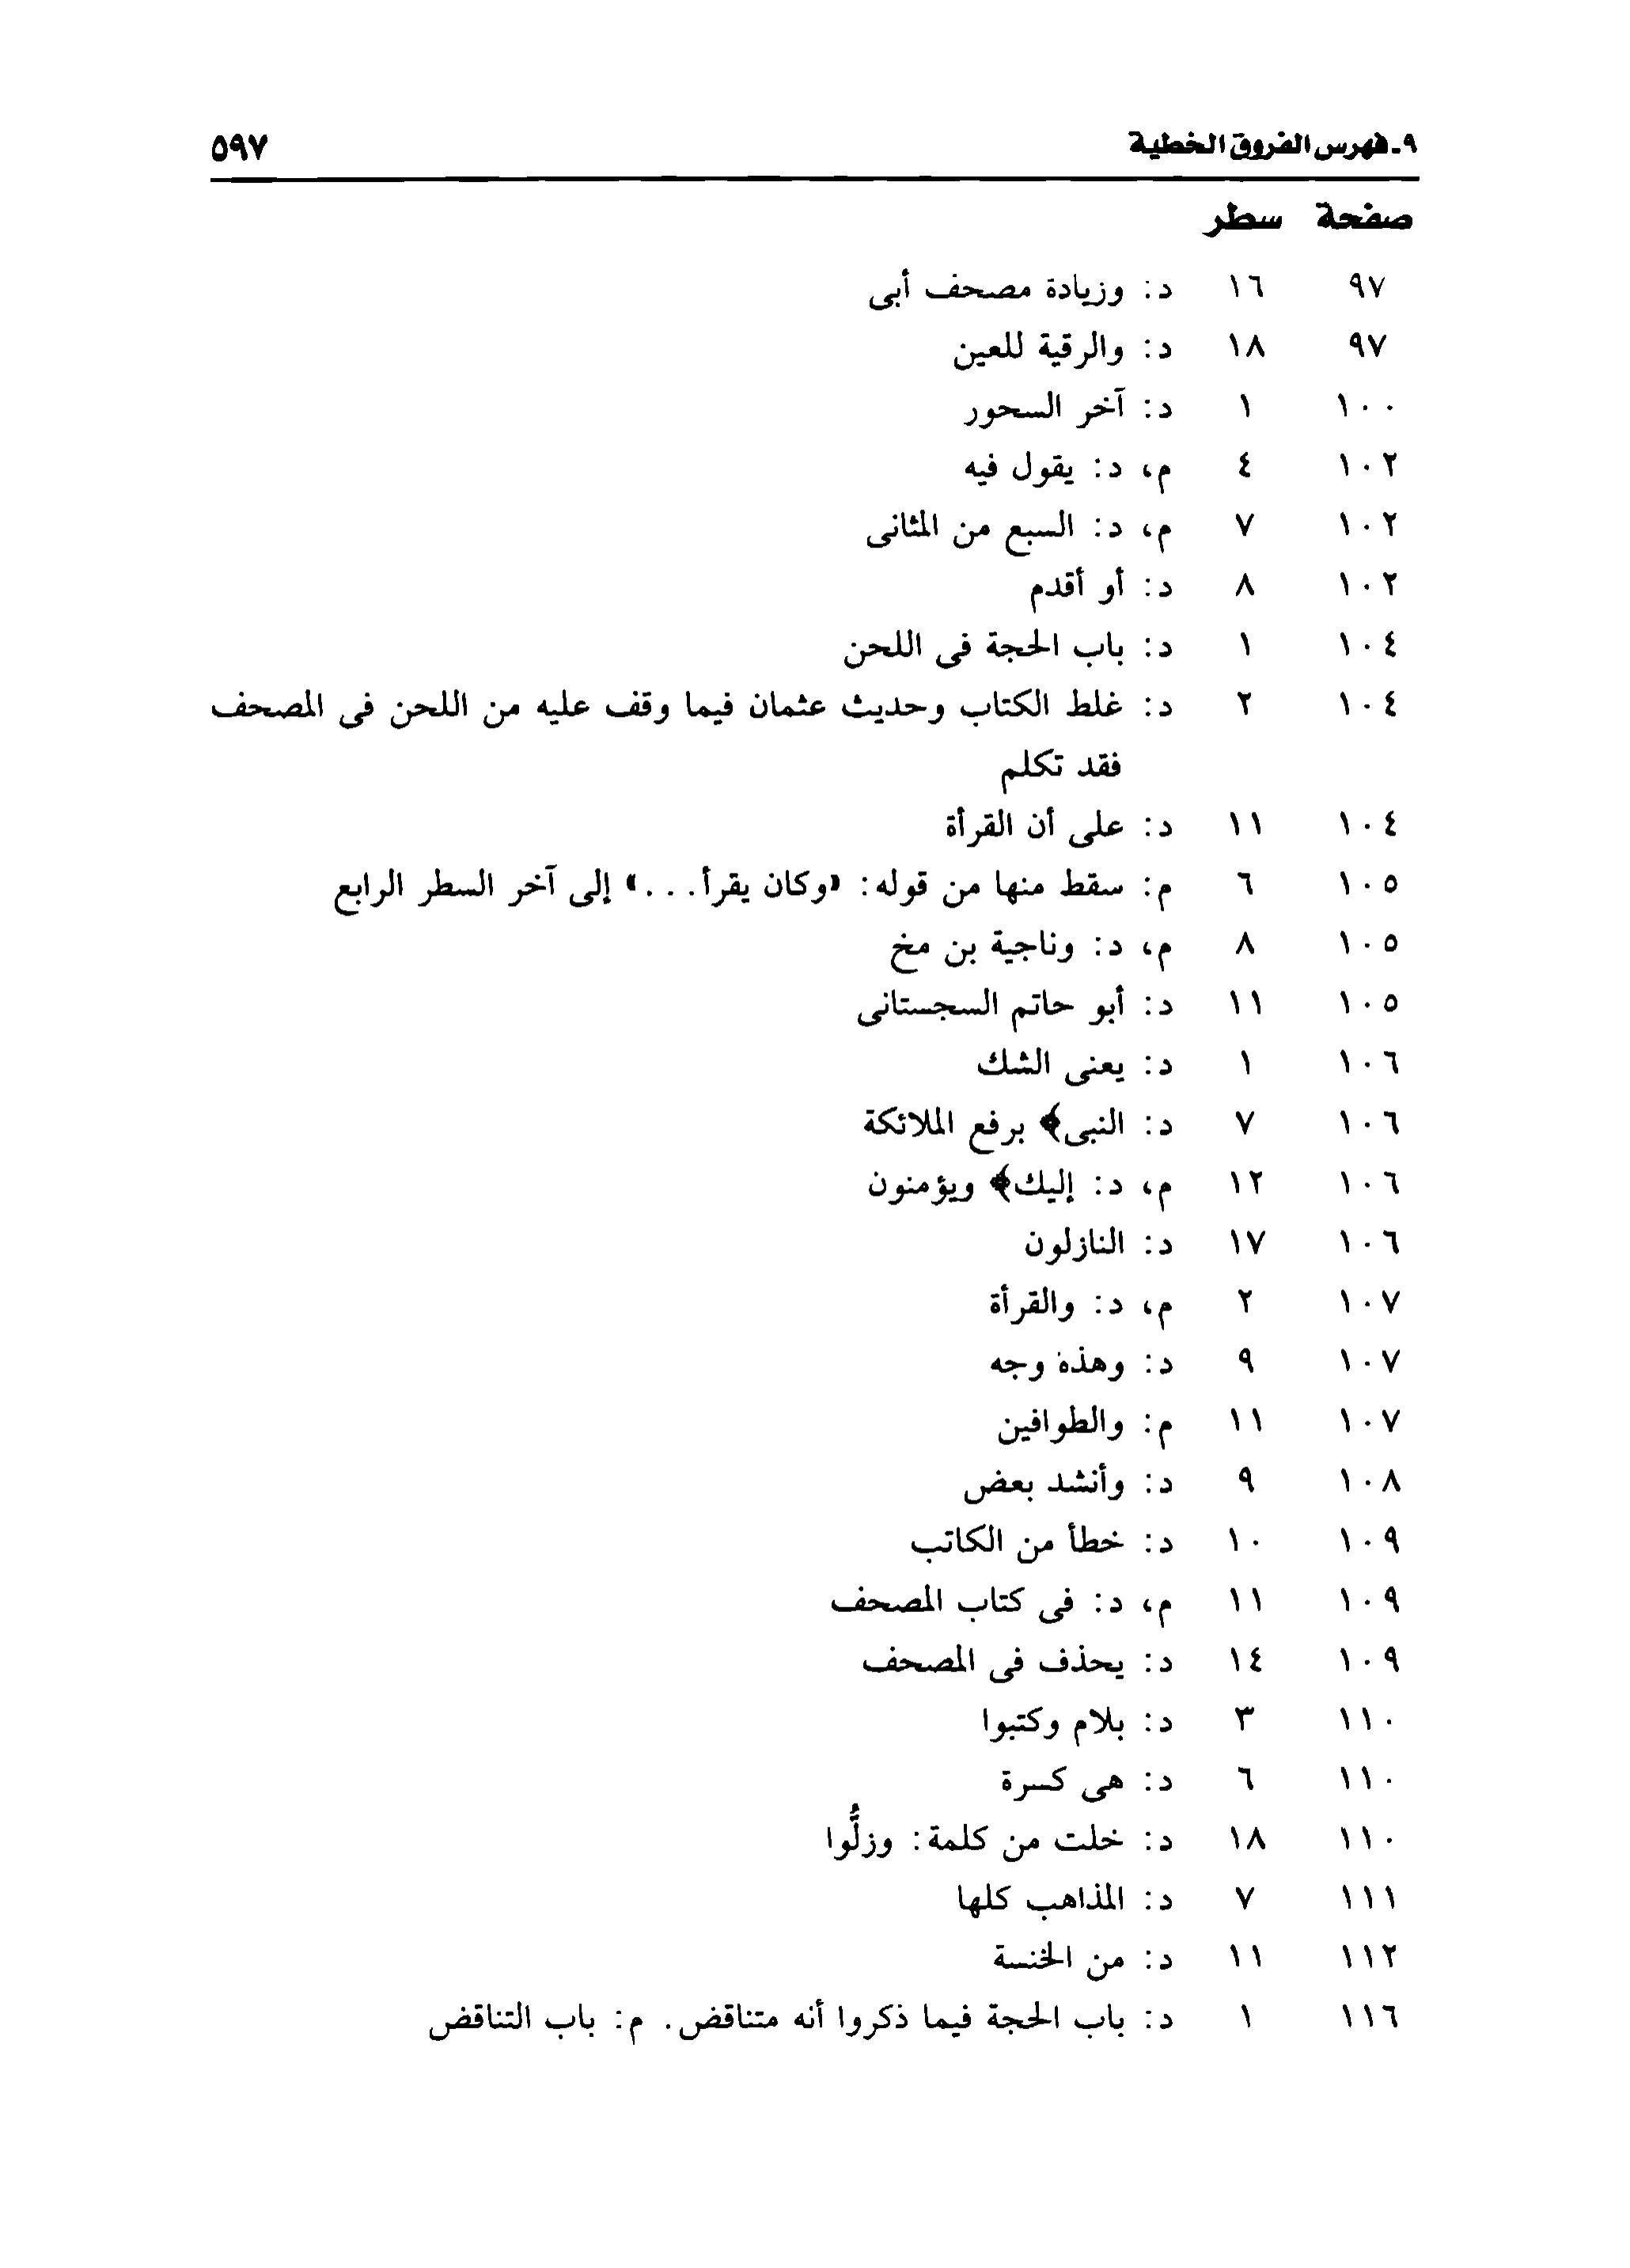 ٩ـ فهرس الفروق الخطية ٥٩٧
صفحة سطر
٩٧ ١٦ د: وزيادة مصحف أبى
٩٧ ١٨ د: والرقية للعين
١٠٠ ١ د: آخر السحور
١٠٢ ٤ م، د: يقول فيه
١٠٢ ٧ م، د: السبع من المثانى
١٠٢ ٨ د: أو أقدم
١٠٤ ١ د: باب الحجة فى اللحن
١٠٤ ٢ د: غلط الكتاب وحديث عثمان فيما وقف عليه من اللحن فى المصحف
فقد تكلم
١٠٤ ١١ د: على أن القرأة
١٠٥ ٦ م: سقط منها من قوله: «وكان يقرأ...» إلى آخر السطر الرابع
١٠٥ ٨ م، د: وناجية بن مخ
١٠٥ ١١ د: أبو حاتم السجستانى
١٠٦ ١ د: يعنى الشك
١٠٦ ٧ د: النبى﴾ برفع الملائكة
١٠٦ ١٢ م، د: إليك﴾ ويؤمنون
١٠٦ ١٧ د: النازلون
١٠٧ ٢ م، د: والقرأة
١٠٧ ٩ د: وهذه وجه
١٠٧ ١١ م: والطوافين
١٠٨ ٩ د: وأنشد بعض
١٠٩ ١٠ د: خطأ من الكاتب
١٠٩ ١١ م، د: فى كتاب المصحف
١٠٩ ١٤ د: يحذف فى المصحف
١١٠ ٣ د: بلام وكتبوا
١١٠ ٦ د: هى كسرة
١١٠ ١٨ د: خلت من كلمة: وزلُّوا
١١١ ٧ د: المذاهب كلها
١١٢ ١١ د: من الخنسة
١١٦ ١ د: باب الحجة فيما ذكروا أنه متناقض. م: باب التناقض